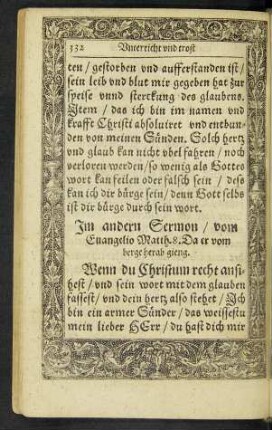 332 Vnterricht vnd trost
ten / gestorben vnd aufferstanden ist /
sein leib vnd blut mir gegeben hat zur
speise vnnd sterckung des glaubens.
Item / das ich bin im namen vnd
krafft Christi absoluiret vnd entbun-
den von meinen Sünden. Solch hertz
vnd glaub kan nicht vbel fahren / noch
verloren werden / so wenig als Gottes
wort kan feilen oder falsch sein / deß
kan ich dir bürge sein / denn Gott selbs
ist dir bürge durch sein wort.
Im andern Sermon / vom
Euangelio Matth. 8. Da er vom
berge herab gieng.
Wenn du Christum recht ansi-
hest / vnd sein wort mit dem glauben
fassest / vnd dein hertz also stehet / Ich
bin ein armer Sünder / das weissestu
mein lieber HErr / du hast dich mir